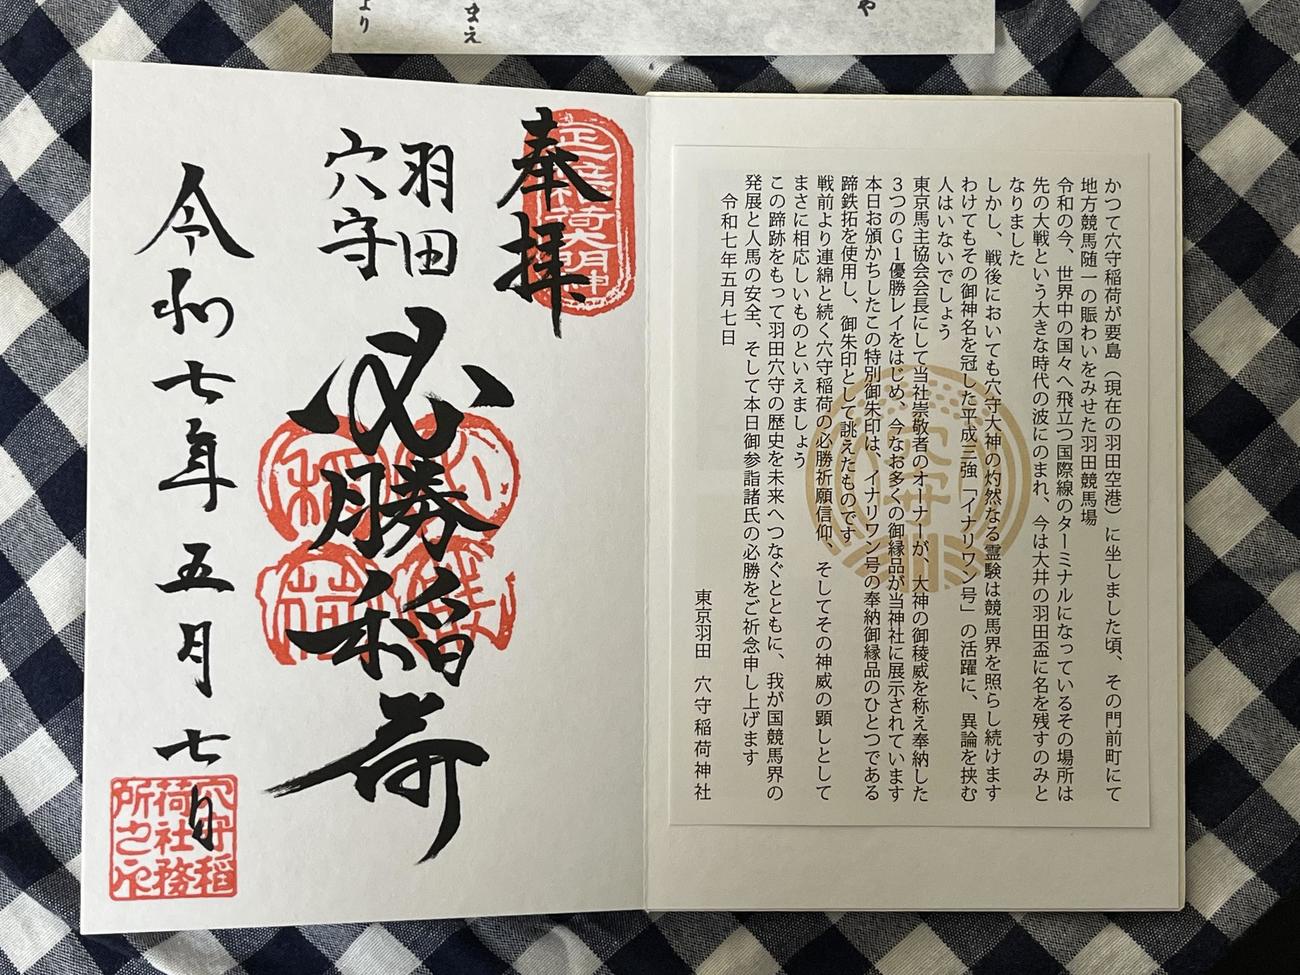 より
まえ
や
かつて穴守稲荷が要島（現在の羽田空港）に坐しました頃、その門前町にて
地方競馬随一の賑わいをみせた羽田競馬場
令和の今、世界中の国々へ飛立つ国際線のターミナルになっているその場所は
先の大戦という大きな時代の波にのまれ、今は大井の羽田盃に名を残すのみと
なりました
しかし、戦後においても穴守大神の灼然なる霊験は競馬界を照らし続けます
わけてもその御神名を冠した平成三強「イナリワン号」の活躍に、異論を挟む
人はいないでしょう
東京馬主協会会長にして当社崇敬者のオーナーが、大神の御稜威を称え奉納した
３つのＧ１優勝レイをはじめ、今なお多くの御縁品が当神社に展示されています
本日お頒かちしたこの特別御朱印は、イナリワン号の奉納御縁品のひとつである
蹄鉄拓を使用し、御朱印として誂えたものです
戦前より連綿と続く穴守稲荷の必勝祈願信仰、そしてその神威の顕しとして
まさに相応しいものといえましょう
この蹄跡をもって羽田穴守の歴史を未来へつなぐとともに、我が国競馬界の
発展と人馬の安全、そして本日御参詣諸氏の必勝をご祈念申し上げます
令和七年五月七日
東京羽田　穴守稲荷神社
奉拝
正一位稲荷大明神
羽田
穴守
必勝稲荷
令和七年五月七日
穴守稲
荷社務
所之印